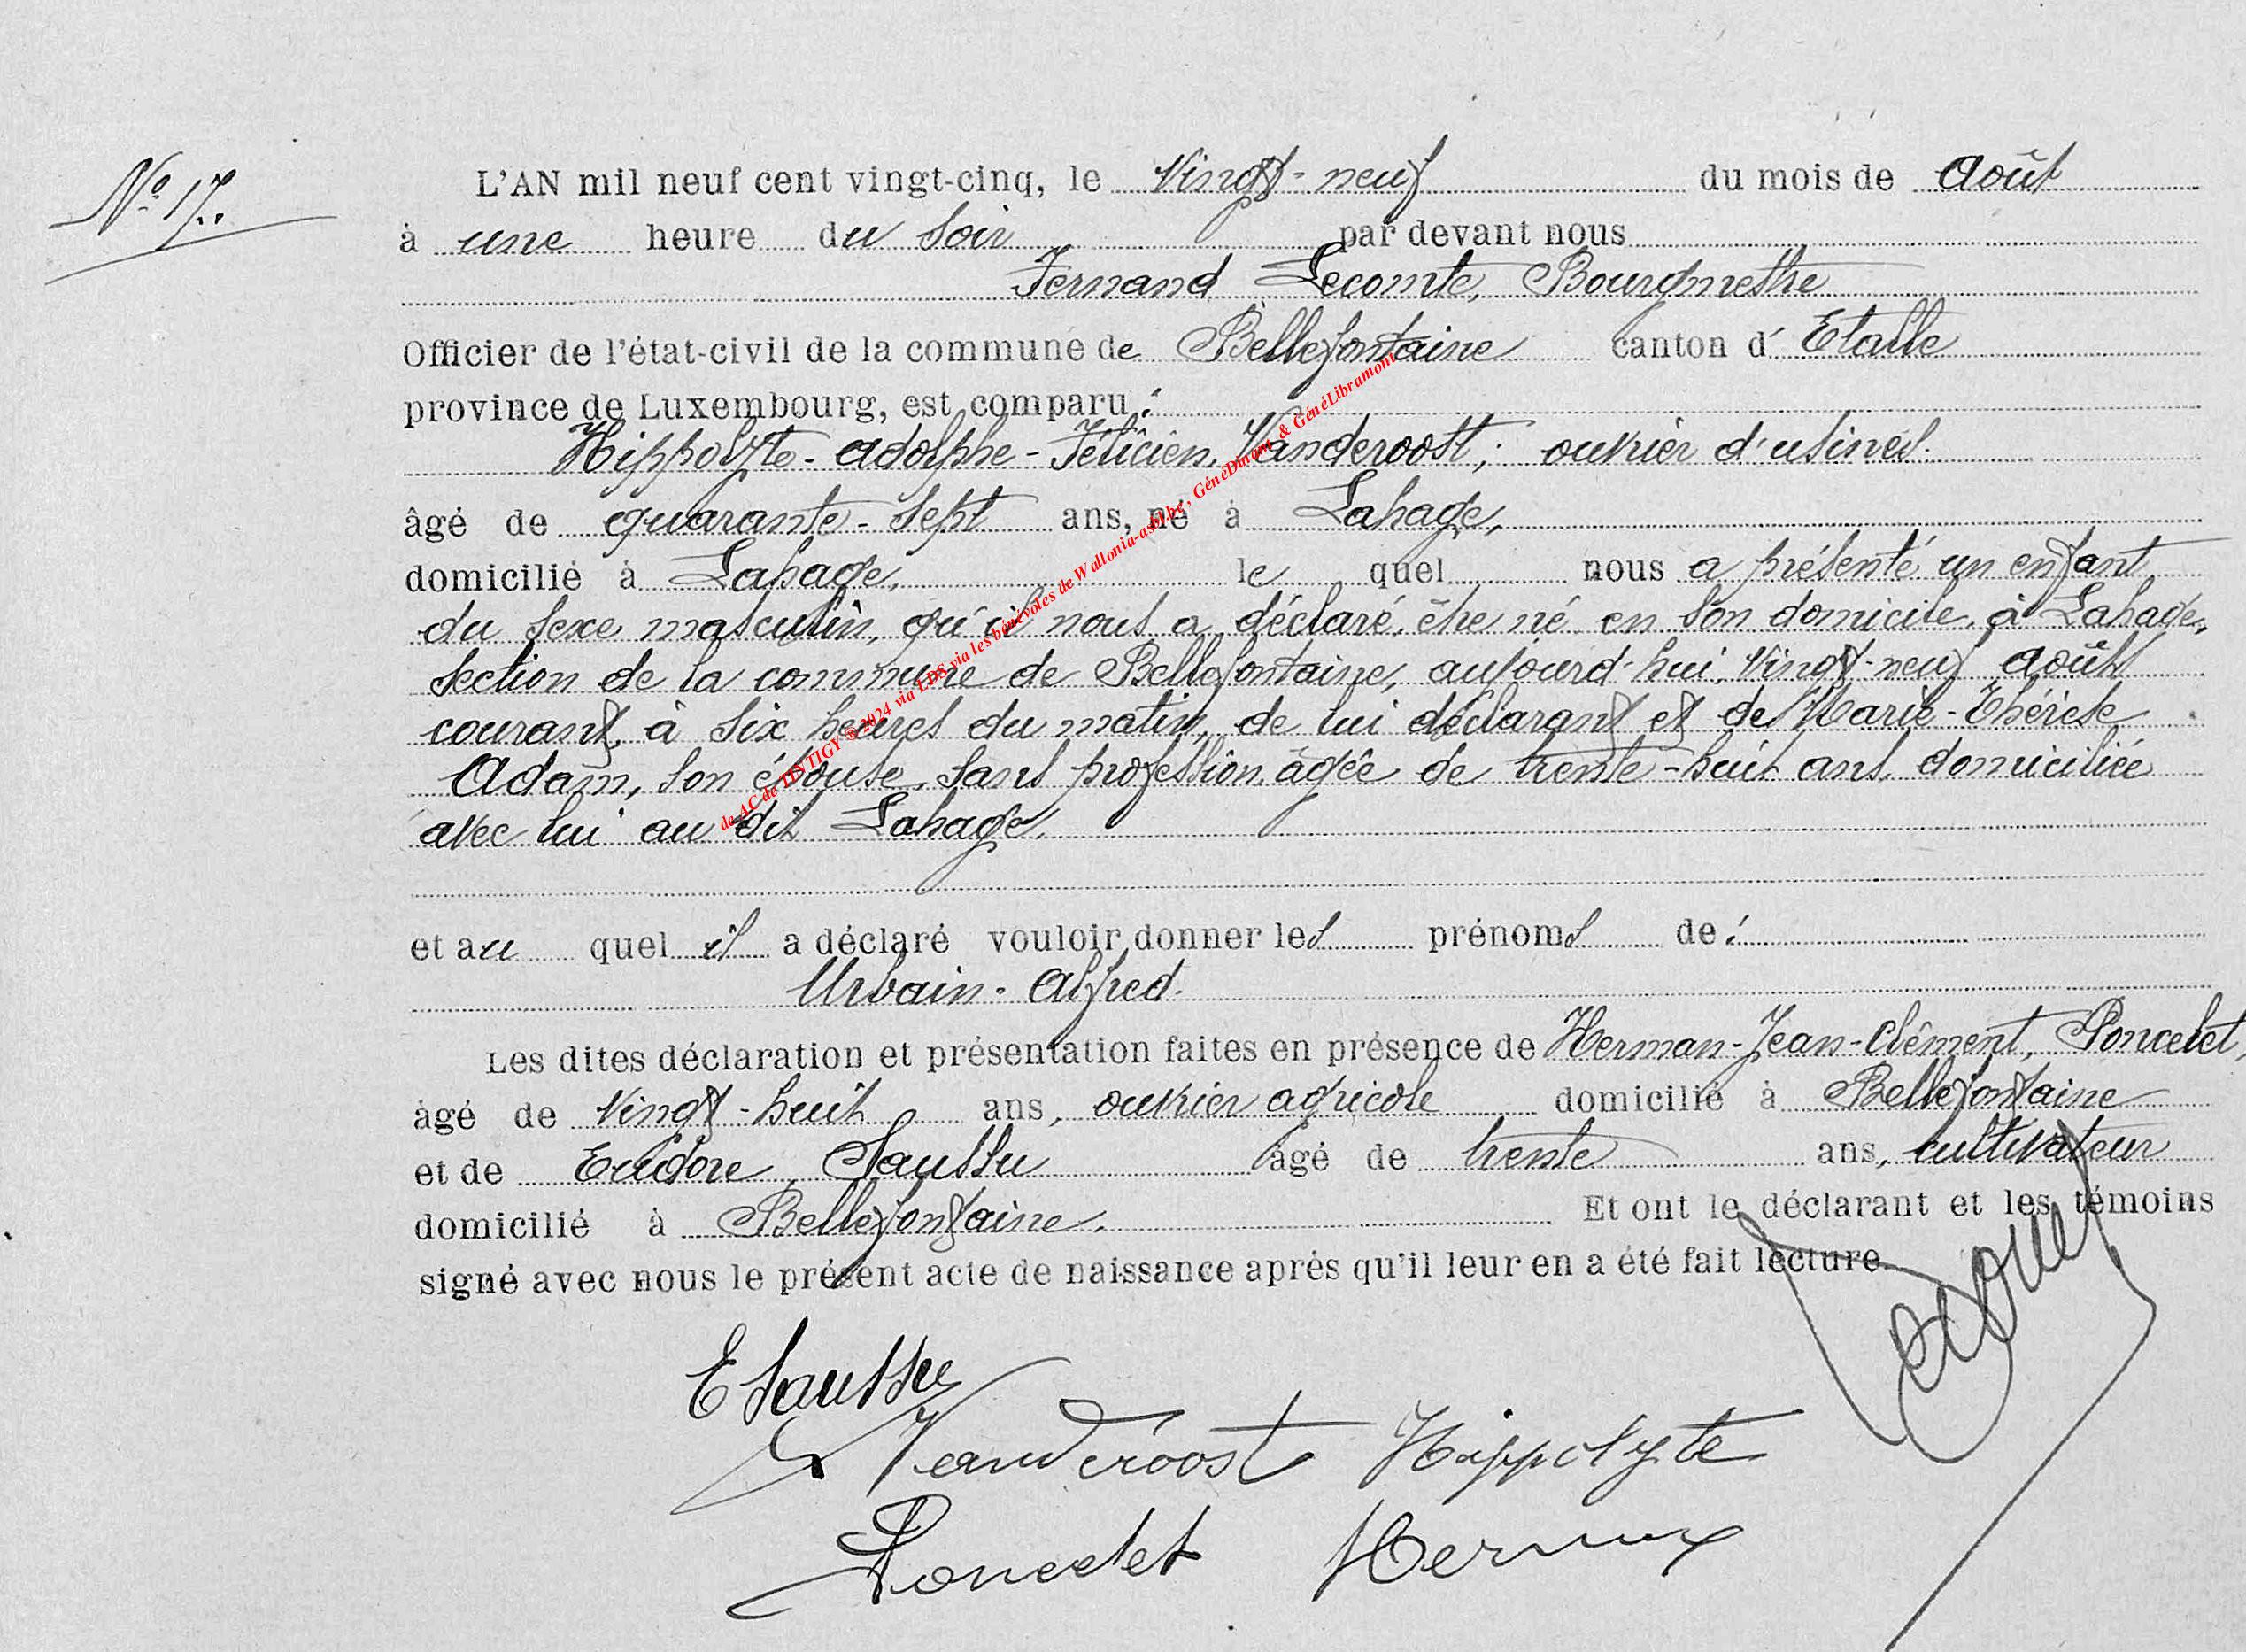 N° 17.
L'AN mil neuf cent vingt-cinq, le vingt-neuf du mois de Août
à une heure du soir par devant nous
Fernand Lecomte, Bourgmestre
Officier de l'état-civil de la commune de Bellefontaine canton d' Etalle
province de Luxembourg, est comparu :
Hippolyte-Adolphe-Félicien, Vanderoost, ouvrier d'usines.
âgé de quarante-sept ans, né à Lahage,
domicilié à Lahage, le quel nous a présenté un enfant
du sexe masculin, qu'il nous a déclaré, être né en son domicile, à Lahage,
section de la commune de Bellefontaine, aujourd'hui, vingt-neuf août
courant, à six heures du matin, de lui déclarant et de Marie-Thérèse
Adam, son épouse, sans profession, âgée de trente-huit ans, domiciliée
avec lui au dit Lahage.
et au quel il a déclaré vouloir donner les prénoms de :
Urbain-Alfred.
Les dites déclaration et présentation faites en présence de Herman-Jean-Clément, Poncelet,
âgé de vingt-huit ans, ouvrier agricole domicilié à Bellefontaine
et de Eudore Saussu âgé de trente ans, cultivateur
domicilié à Bellefontaine. Et ont le déclarant et les témoins
signé avec nous le présent acte de naissance après qu'il leur en a été fait lecture.
E Saussu
Vanderoost Hippolyte
Poncelet Herman
de AC de TINTIGY © 2024 via LDS via les bénévoles de Wallonia-asbl.be, GénéDinant & GénéLibramont